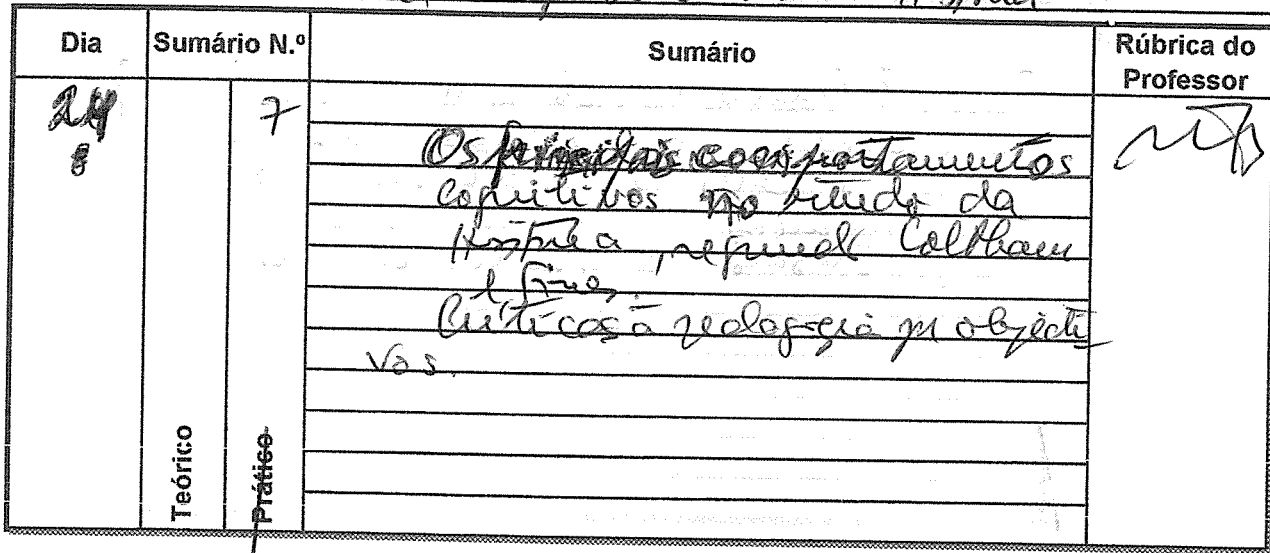 Dia Sumário N.º Sumário Rúbrica do Professor
24 7
Os principais comportamentos
cognitivos no estudo da
História, segundo Coltham
e Fines.
Críticas à pedagogia por objecti
vos.
Teórico Prático